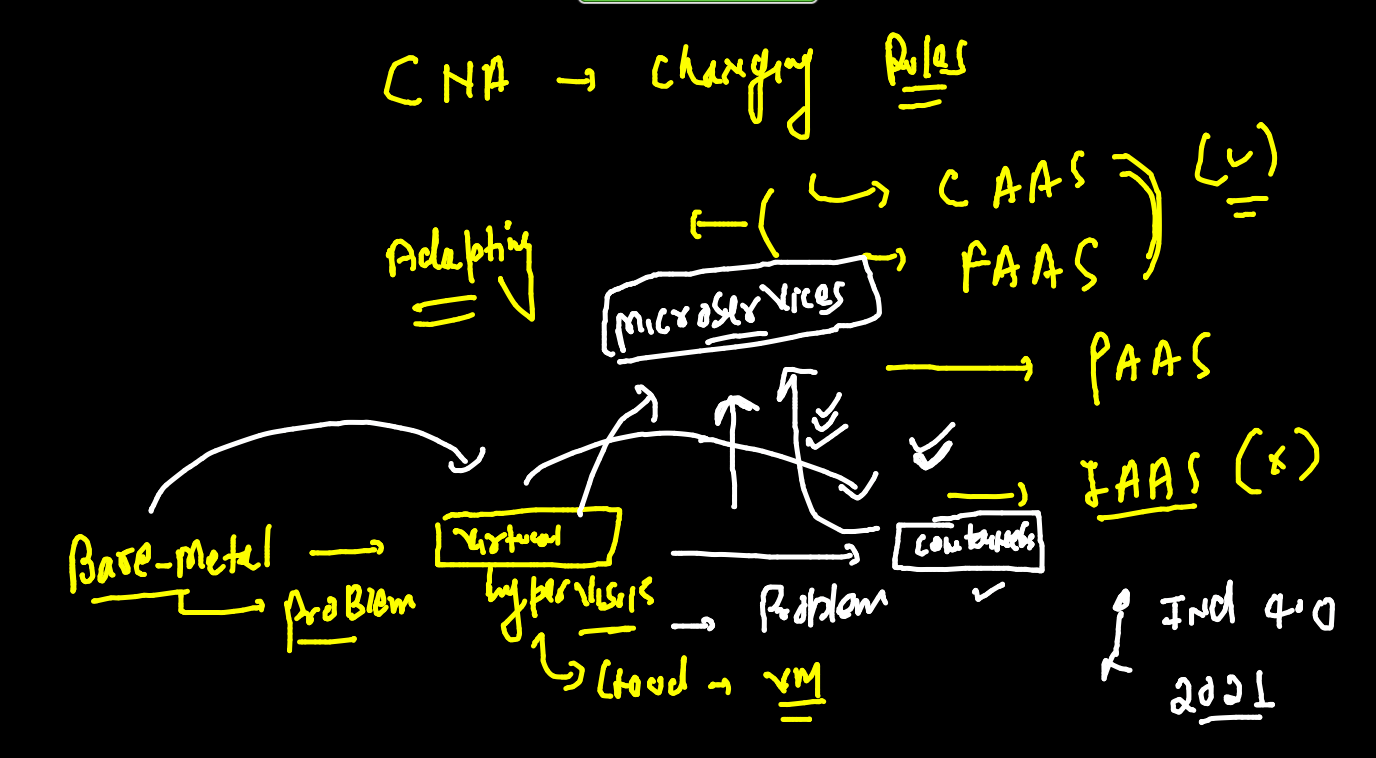 CNA → Changing Rules
CAAS (✓)
Adapting
FAAS
Microservices
PAAS
IAAS (x)
Bare-Metal → Virtual → Containers
ProBlem
hypervisors → Problem
Ind 4.0
Cloud → VM
2021